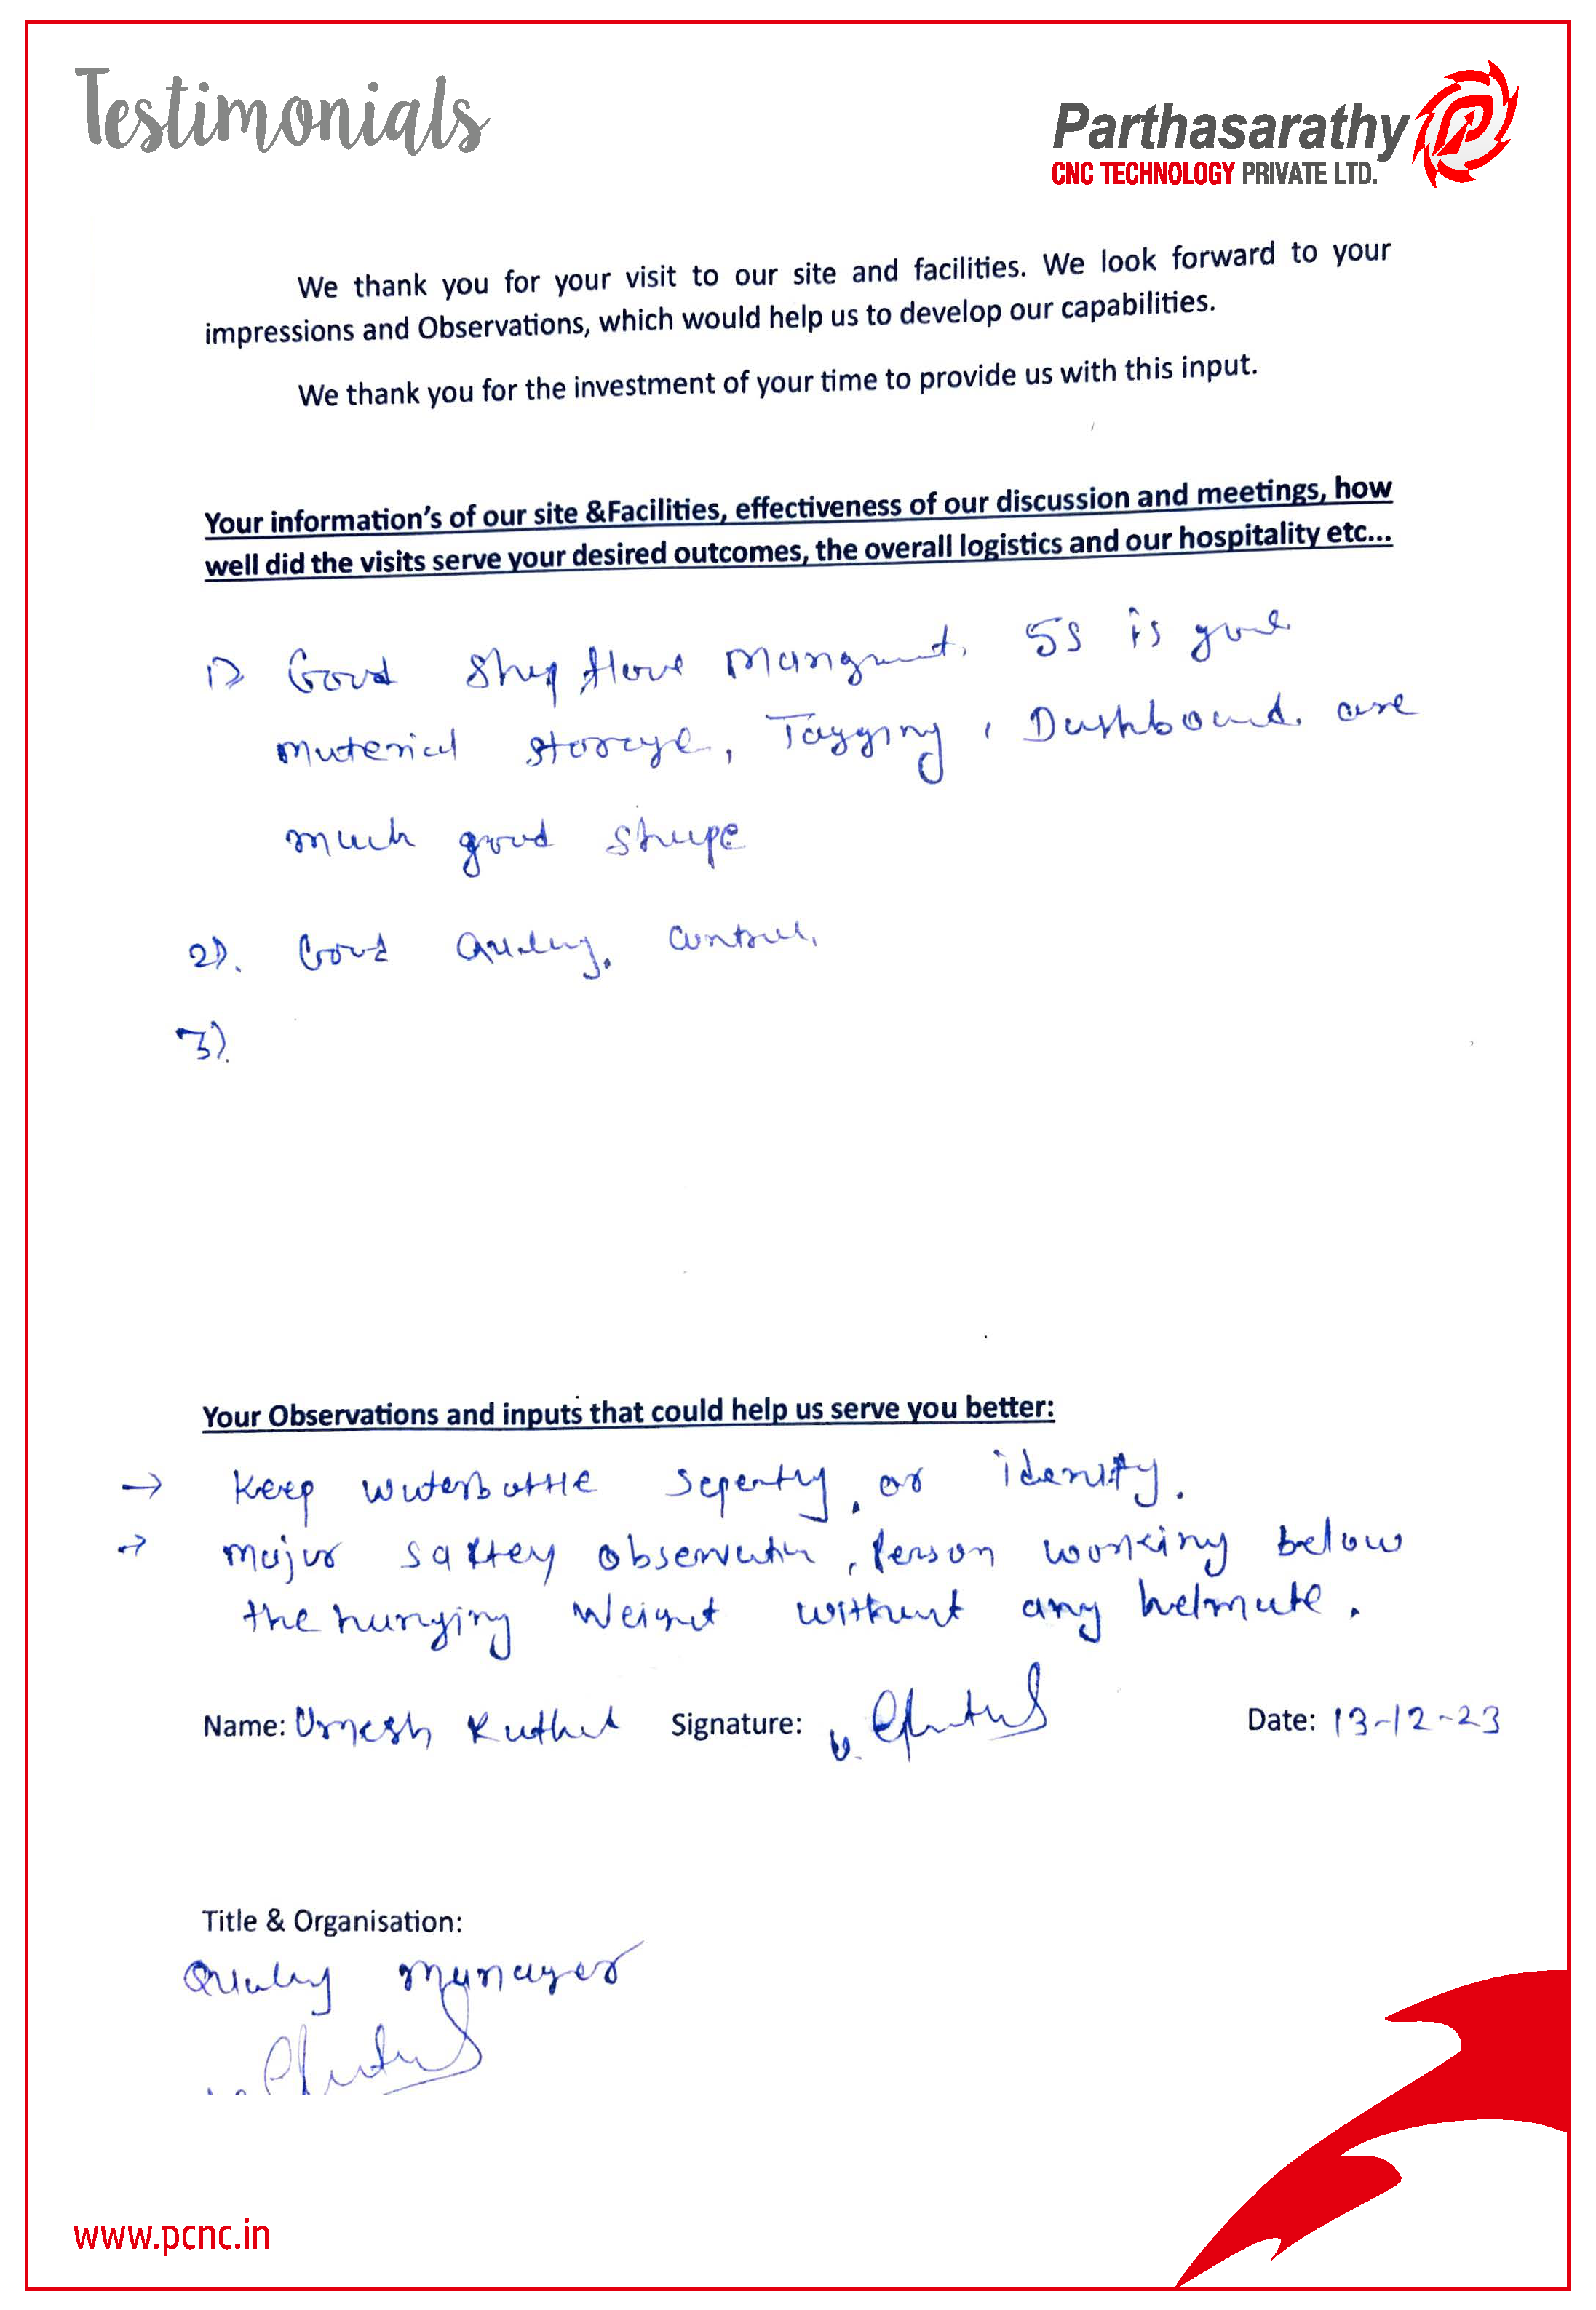 Testimonials
Parthasarathy
CNC TECHNOLOGY PRIVATE LTD.
We thank you for your visit to our site and facilities. We look forward to your
impressions and Observations, which would help us to develop our capabilities.
We thank you for the investment of your time to provide us with this input.
Your information's of our site &Facilities, effectiveness of our discussion and meetings, how
well did the visits serve your desired outcomes, the overall logistics and our hospitality etc...
1) Good Shop flore Mangment. 5S is good
material storage, Tagging, Dashboard. are
much good shape
2). Good Quality. control.
3).
Your Observations and inputs that could help us serve you better:
→ Keep waterbottle or identity.
→ major saftey observation, Person working below
the hanging weight without any helmate.
Name: Umesh Signature: Date: 13-12-23
Title & Organisation:
Quality manager
www.pcnc.in